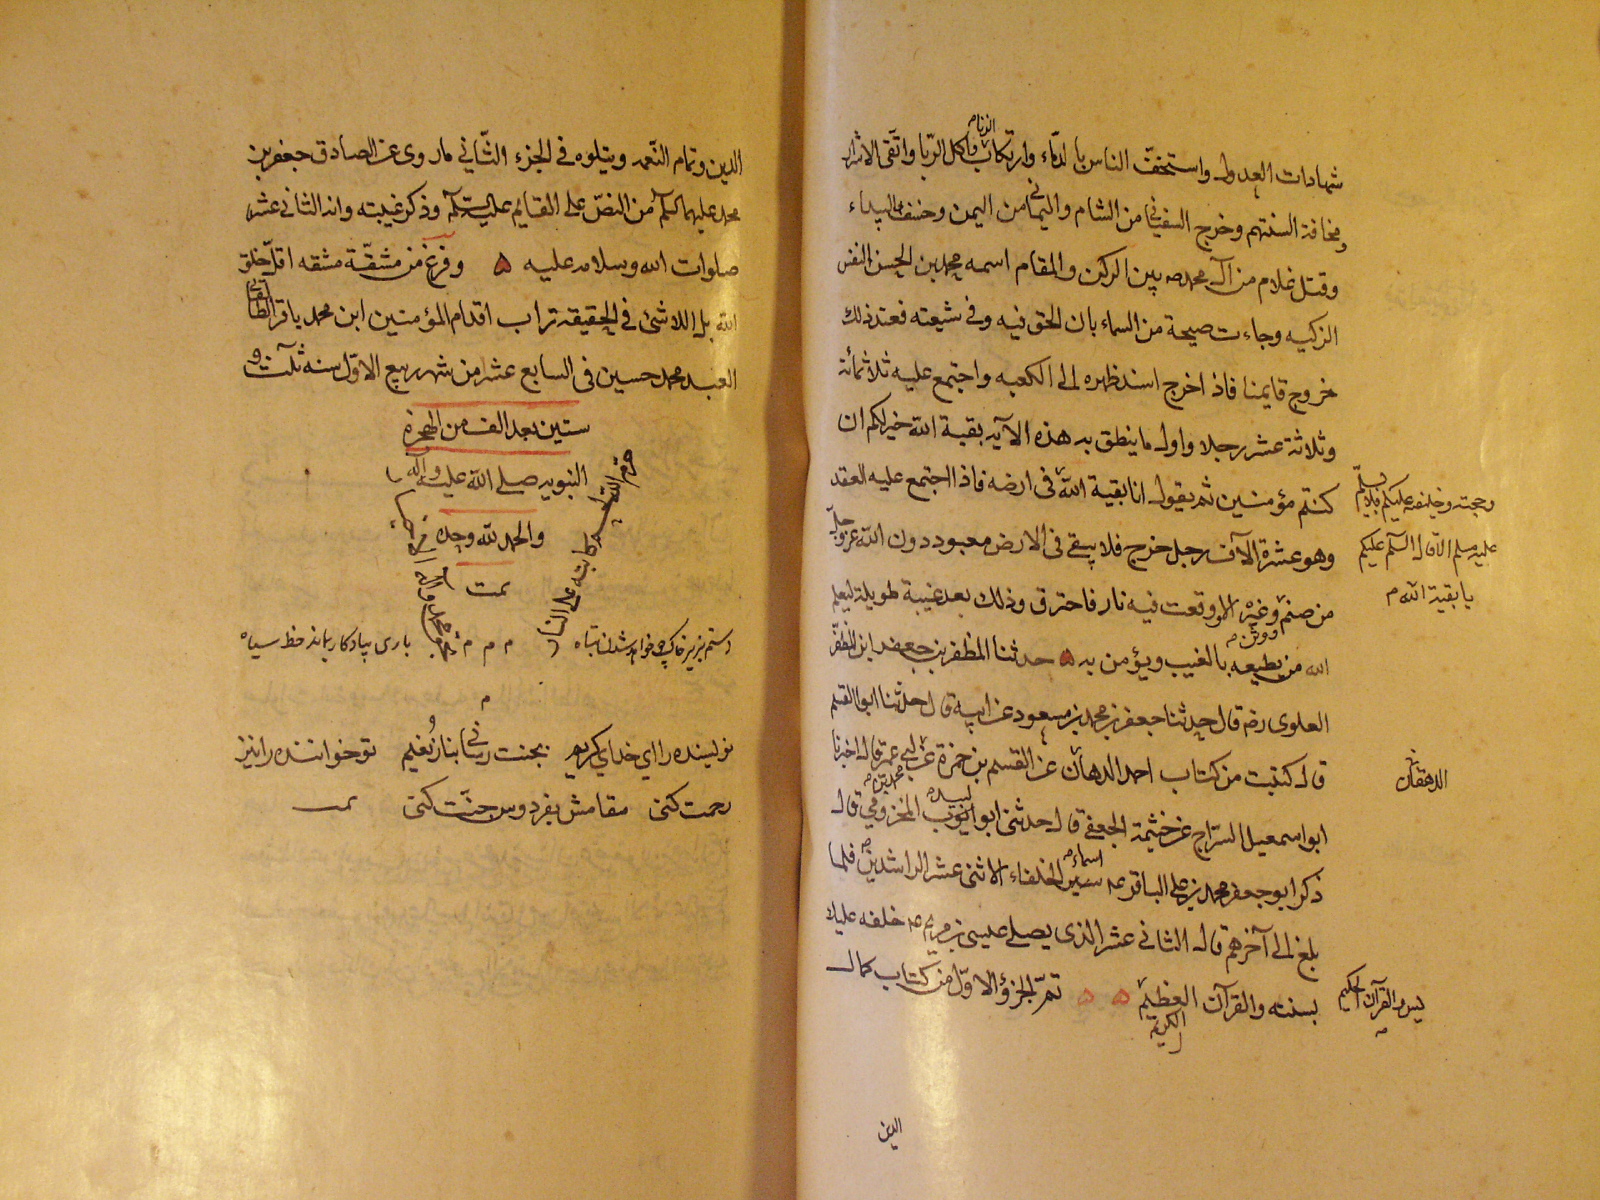 شهادات العدول واستخفّ الناس بالدمّاء وارتكاب الزنا واكل الربا واتّقى الاشرار
مخافة السنتهم وخرج السفياني من الشام واليماني من اليمن وخسف بالبيداء
وقتل غلام من آل محمد ص بين الركن والمقام اسمه محمد بن الحسن النفس
الزكيه وجاءت صيحة من السماء بان الحق فيه وفى شيعته فعند ذلك
خروج قايمنا فاذا خرج اسند ظهره الى الكعبه واجتمع عليه ثلاثمائة
وثلاثة عشر رجلا واول ما ينطق به هذه الآيه بقية الله خير لكم ان
كنتم مؤمنين ثم يقول انا بقية الله فى ارضه فاذا اجتمع عليه العقد
وحجته وخليفته عليكم فلا يسلّم
وهو عشرة الآف رجل خرج فلا يبقى فى الارض معبود دون الله عزوجل
عليه مسلم الا قال السلم عليكم
يا بقية الله م
من صنم ووثن وغيره الا وقعت فيه نار فاحترق وذلك بعد غيبة طويلة ليعلم
الله من يطيعه بالغيب ويؤمن به ۵ حدثنا المظفر بن جعفر ابن المظفّر
العلوى رضه قال حدثنا جعفر بن محمد بن مسعود عن ابيه قال حدثنا ابوالقسم
قال كتبت من كتاب احمد الدهان عن القسم بن حمزة عن محمد بن ابى عمير قال اخبرنا
الدهقان
ابو اسمعيل السرّاج عن خيثمة الجعفى قال حدثنى ابو ايوب المخزومي قال
لبيد
ذكر ابو جعفر محمد بن على الباقر عه سير الخلفاء الاثنى عشر الراشدين ص فلما
اسماء
بلغ الى آخرهم قال الثانى عشر الذى يصلى عيسى بن مريم عه خلفه عليك
بسنته والقرآن العظيم ۵ ۵ تمّ الجزؤ الاوّل من كتاب كمال
يس والقرآن الحكيم
الكريم
الدين
الدين وتمام النّعمه ويتلوه فى الجزء الثّاني ما روى عن الصادق جعفر بن
محمد عليهما السلم من النصّ على القايم عليه السّلم وذكر غيبته وانه الثانى عشر
صلوات الله وسلامه عليه ۵ وفرغ من مشقّة مشقه اقلّ خلق
الله بل اللاشئ فى الحقيقه تراب اقدام المؤمنين ابن محمد باقر
العبد محمد حسين فى السابع عشر من شهر ربيع الاوّل سنه ثلث و
ستين بعد الف من الهجرة
النبويه صلى الله عليه وآله
والحمد لله وحده
تمت
حرّم الله كاتبه على النار
بمحمد وآله
دستم بزير خاك چو خواهد شدن تباه
بارى بيادگار بماند خط سياه
م م م
م
نويسنده را اي خداي كريم بجنت رسانى بناز نُعيم تو خواننده را نيز
رحمت كنى مقامش بفردوس جنّت كنى تمت